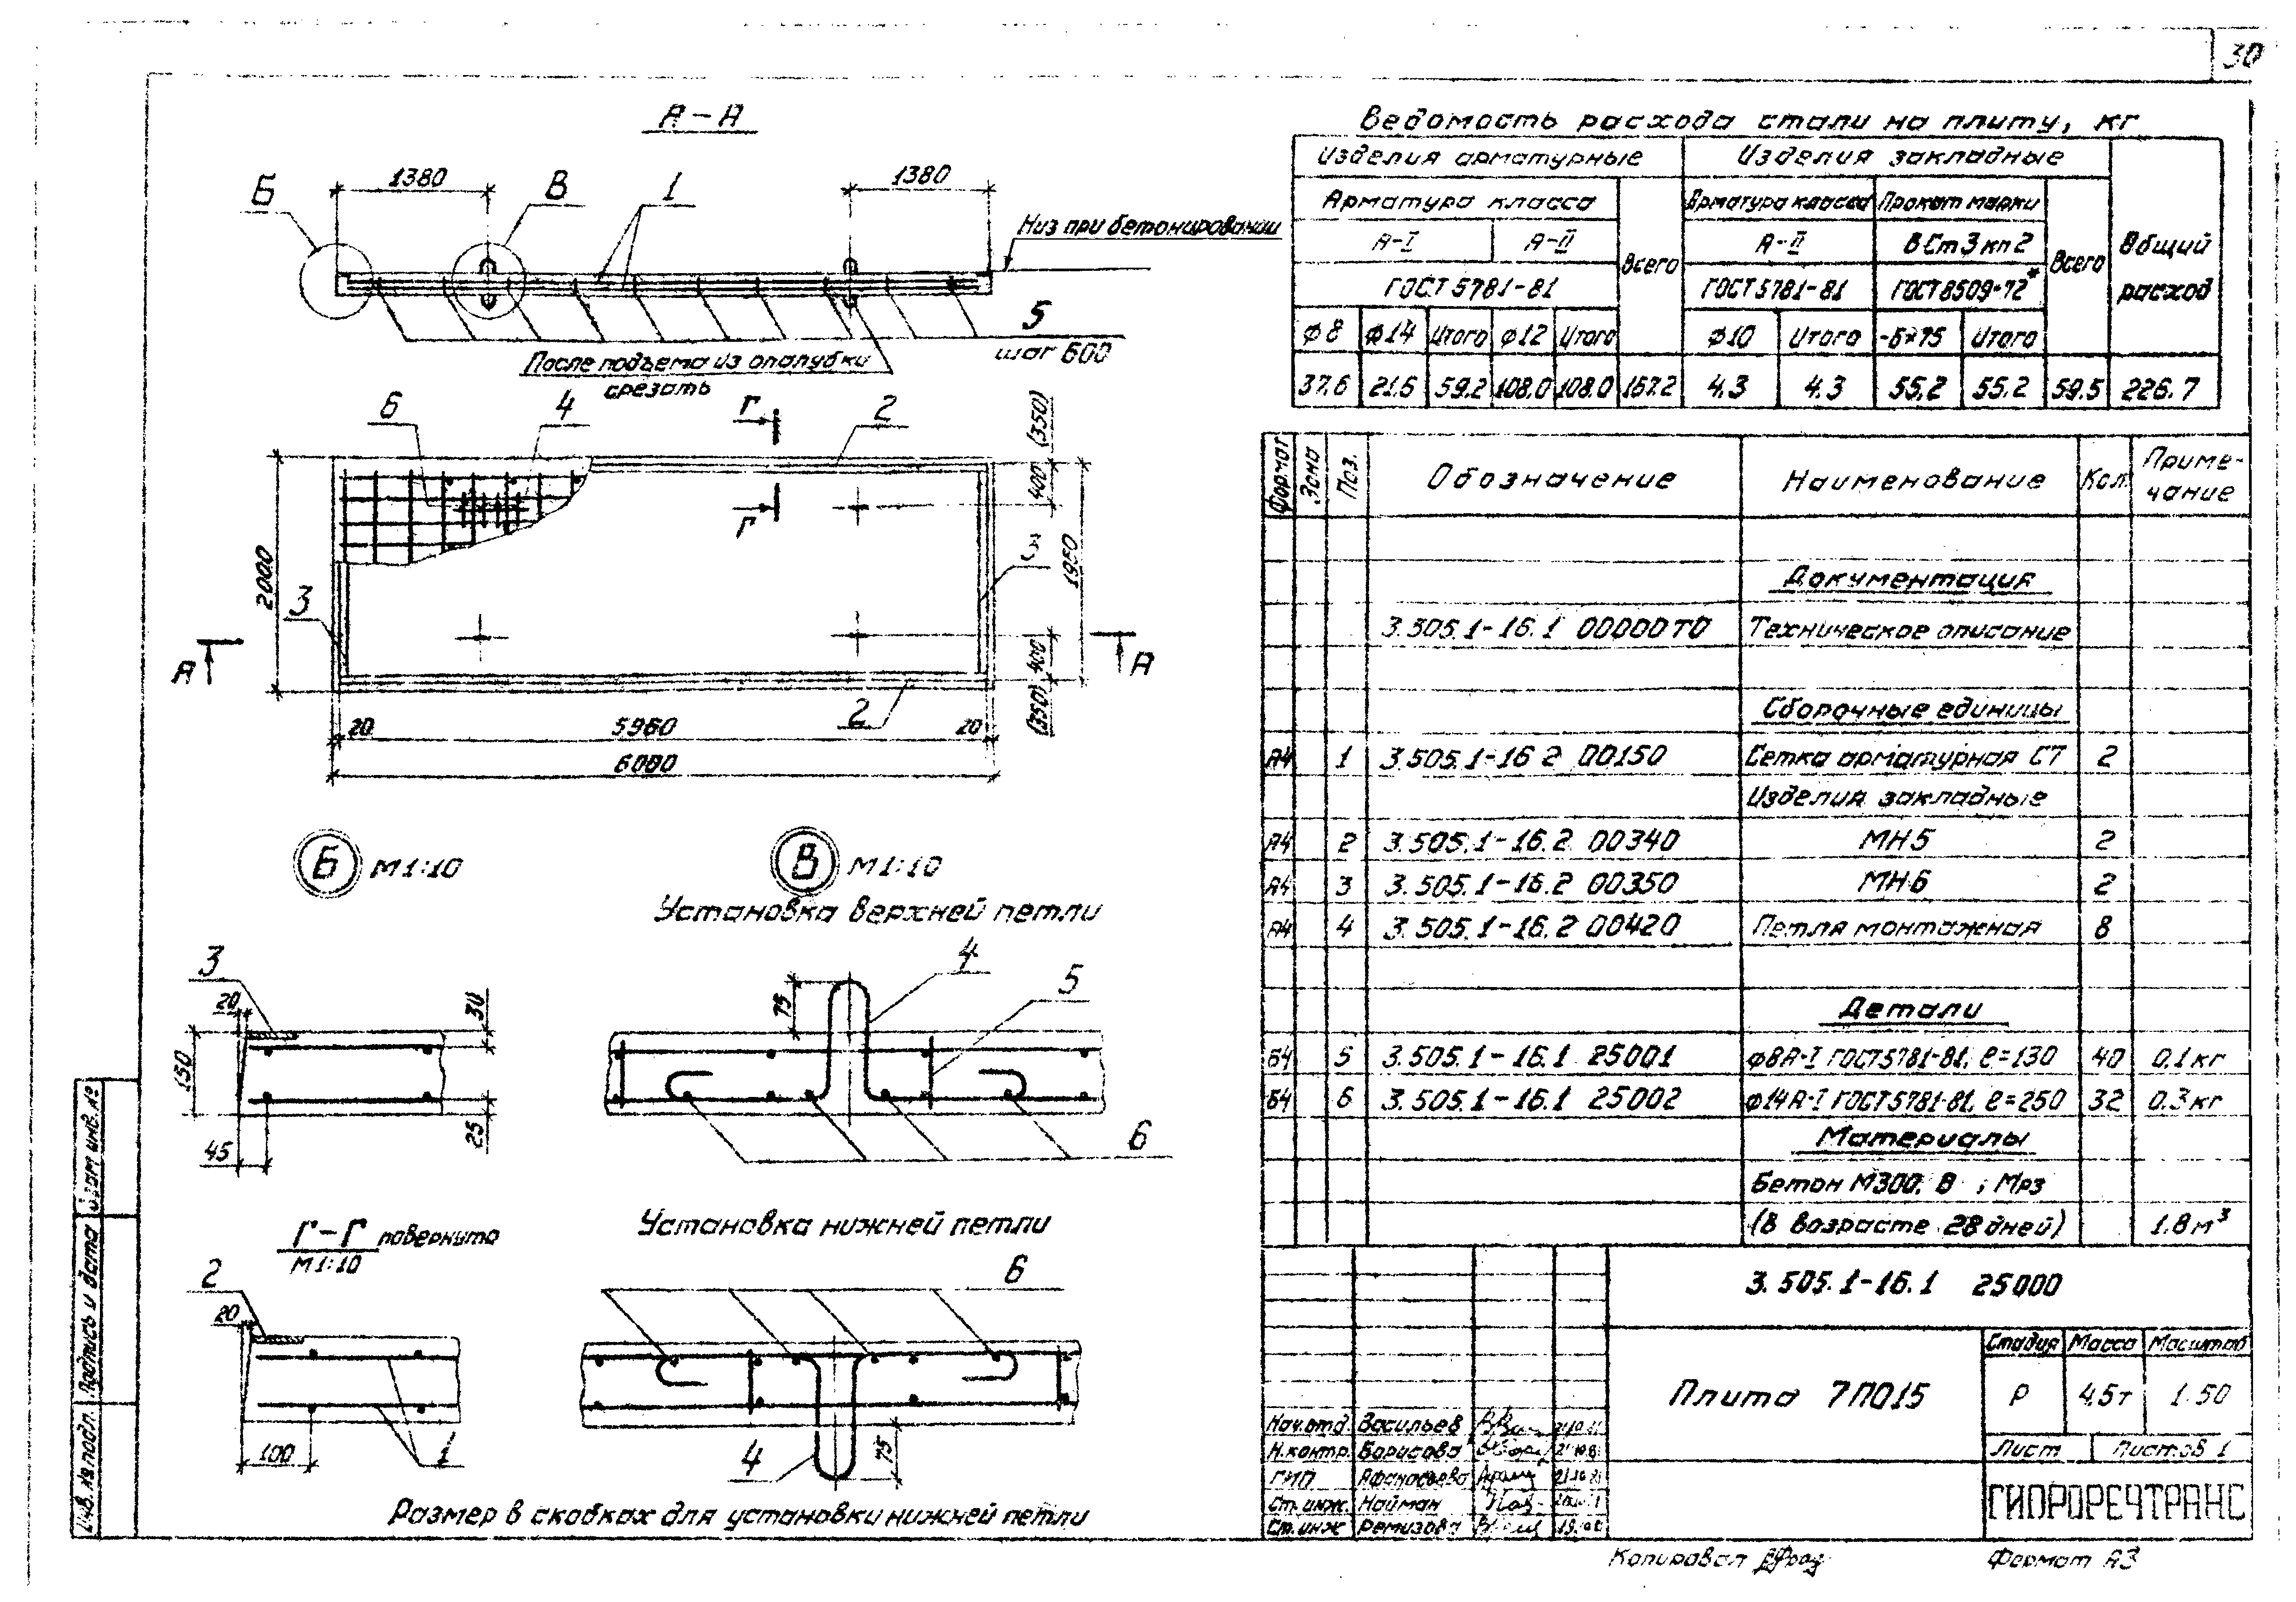 30
А-А
1380
1380
Б
В
1
Низ при бетонировании
5
шаг 600
После подъема из опалубки
срезать
Б
4
Г
2
(350)
400
Г
2000
1960
3
А
А
400
(350)
2
20
5960
20
6000
Б М1:10
В М1:10
Установка верхней петли
3
20
30
150
25
45
4
75
5
6
Г-Г повернуто
М1:10
2
20
100
1
Установка нижней петли
6
4
75
Размер в скобках для установки нижней петли
Ведомость расхода стали на плиту, кг
Изделия арматурные
Изделия закладные
Общий
расход
Арматура класса
Всего
Арматура класса
Прокат марки
Всего
А-I
А-II
А-II
ВСт3кп2
ГОСТ 5781-81
ГОСТ 5781-81
ГОСТ 8509-72*
ф8 ф14 Итого ф12 Итого ф10 Итого -6×75 Итого
37.6 21.6 59.2 108.0 108.0 167.2 4.3 4.3 55.2 55.2 59.5 226.7
Формат Зона Поз. Обозначение Наименование Кол. Приме-
чание
Документация
3.505.1-16.1 00000ТО Техническое описание
Сборочные единицы
А4 1 3.505.1-16 2 00150 Сетка арматурная С7 2
Изделия закладные
А4 2 3.505.1-16.2 00340 МН5 2
А4 3 3.505.1-16.2 00350 МН6 2
А4 4 3.505.1-16.2 00420 Петля монтажная 8
Детали
Б4 5 3.505.1-16.1 25001 ф8А-I ГОСТ5781-81, ℓ=130 40 0.1кг
Б4 6 3.505.1-16.1 25002 ф14А-I ГОСТ5781-81, ℓ=250 32 0.3кг
Материалы
Бетон М300, В , Мрз
(в возрасте 28 дней) 1.8м³
3.505.1-16.1 25000
Плита 7П015
Стадия Масса Масштаб
Р 4,5т 1:50
Лист Листов 1
ГИПРОРЕЧТРАНС
Нач.отд. Васильев
Н.контр. Борисова
ГИП Афанасьева
Ст.инж. Найман
Ст.инж Ремизова
Копировал
Формат А3
Взам инв. №
Подпись и дата
Инв. № подл.